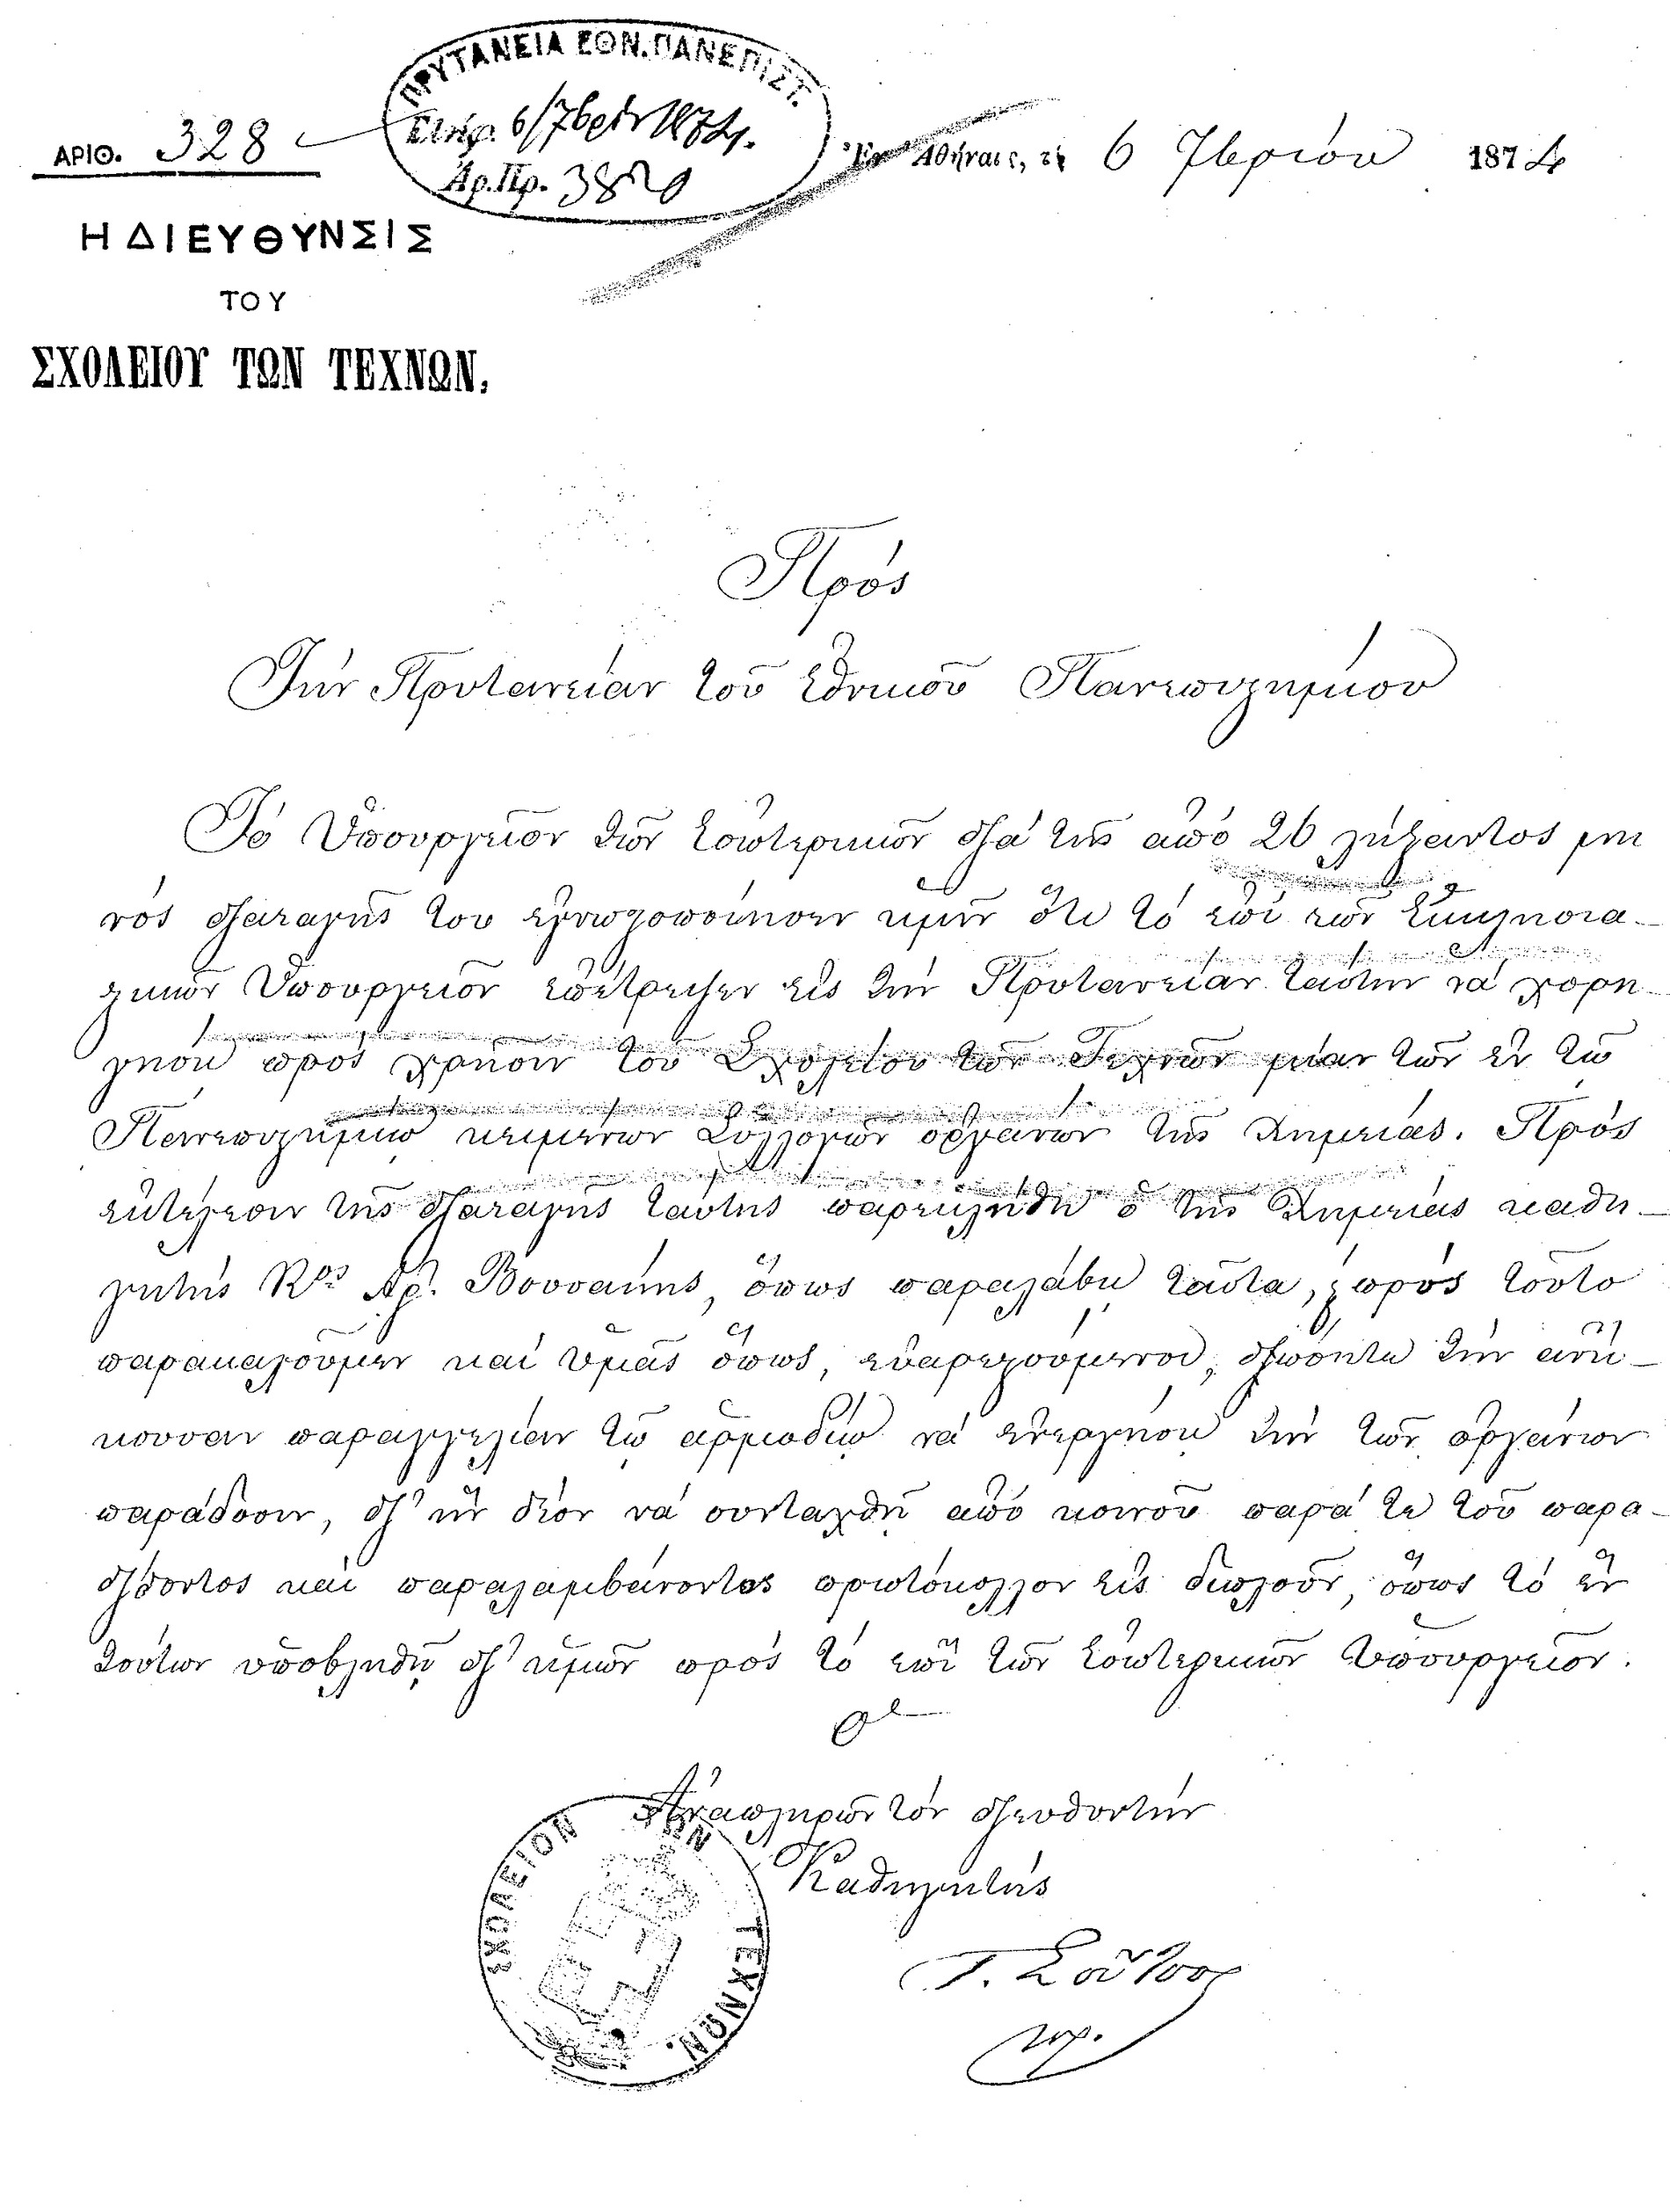 ΠΡΥΤΑΝΕΙΑ ΕΘΝ. ΠΑΝΕΠΙΣΤ.
6/7βρίου 1874.
Ἀρ. Πρ. 3820
ΑΡΙΘ. 328
Ἐν Ἀθήναις, τῇ 6 7βρίου 1874
Η ΔΙΕΥΘΥΝΣΙΣ
ΤΟΥ
ΣΧΟΛΕΙΟΥ ΤΩΝ ΤΕΧΝΩΝ.
Πρὸς
Τὴν Πρυτανείαν τοῦ Ἐθνικοῦ Πανεπιστημίου
Τὸ Ὑπουργεῖον τῶν Ἐσωτερικῶν διὰ τῆς ἀπὸ 26 λήξαντος μη
νὸς διαταγῆς του ἐγνωστοποίησεν ἡμῖν ὅτι τὸ ἐπὶ τῶν Ἐκκλησια-
στικῶν Ὑπουργεῖον ἐπέτρεψεν εἰς τὴν Πρυτανείαν ταύτην νὰ χορη-
γήσῃ πρὸς χρῆσιν τοῦ Σχολείου τῶν Τεχνῶν μίαν τῶν ἐν τῷ
Πανεπιστημίῳ κειμένων Συλλογῶν ὀργάνων τῆς Χημείας. Πρὸς
ἐκτέλεσιν τῆς διαταγῆς ταύτης παρεκλήθη ὁ τῆς Χημείας καθη-
γητὴς Κος Ἀρ. Βουσάκης, ὅπως παραλάβῃ ταῦτα, πρὸς τοῦτο
παρακαλοῦμεν καὶ ὑμᾶς ὅπως, εὐαρεστούμενοι, δώσητε τὴν ἀνή-
κουσαν παραγγελίαν τῷ ἁρμοδίῳ νὰ ἐνεργήσῃ τὴν τῶν ὀργάνων
παράδοσιν, δι' ἣν δέον νὰ συνταχθῇ ἀπὸ κοινοῦ παρά τε τοῦ παρα-
δίδοντος καὶ παραλαμβάνοντος πρωτόκολλον εἰς διπλοῦν, ὅπως τὸ ἓν
τούτων ὑποβληθῇ δι' ἡμῶν πρὸς τὸ ἐπὶ τῶν Ἐσωτερικῶν Ὑπουργεῖον.
Ἀναπληρῶν τὸν διευθυντὴν
Καθηγητὴς
Γ. Σοῦτσος
ΣΧΟΛΕΙΟΝ ΤΩΝ ΤΕΧΝΩΝ.